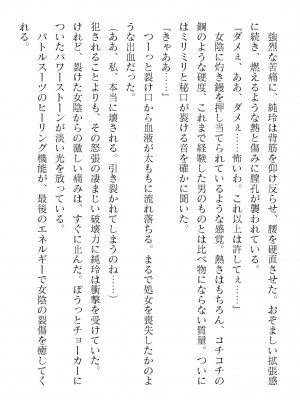 強烈な苦痛に、純玲は背筋を仰け反らせ、腰を硬直させた。おぞましい拡張感
に続き、燃えるような熱と傷みに膣孔が襲われている。
「ダメぇ、ああ、ダメ……、怖いわ。これ以上は許してぇ……」
女陰に灼き鏝を押し当てられているような感覚。熱さはもちろん、コチコチの
鋼のような硬度、これまで経験した男のものとは比べ物にならない質量。ついに
はミリミリと秘口が裂ける音を確かに聞いた。
「きゃああ……」
つーっと裂け口から血液が太ももに流れ落ちる。まるで処女を喪失したかのよ
うな出血だった。
（ああ、私、本当に壊される。引き裂かれてしまうのね……）
犯されることよりも、その怒張の凄まじい破壊力に純玲は衝撃を受けていた。
けれど、裂けた女陰からの激しい痛みは、すぐに止んだ。ぼうっとチョーカーに
ついたパワーストーンが淡い光を放っている。
バトルスーツのヒーリング機能が、最後のエネルギーで女陰の裂傷を癒してく
れる。